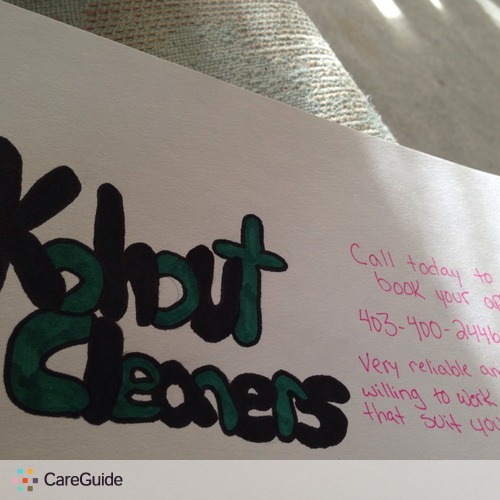 Kohout
Cleaners
Call today to
book your
403-400-2446
Very reliable
willing to work
that suit
CareGuide